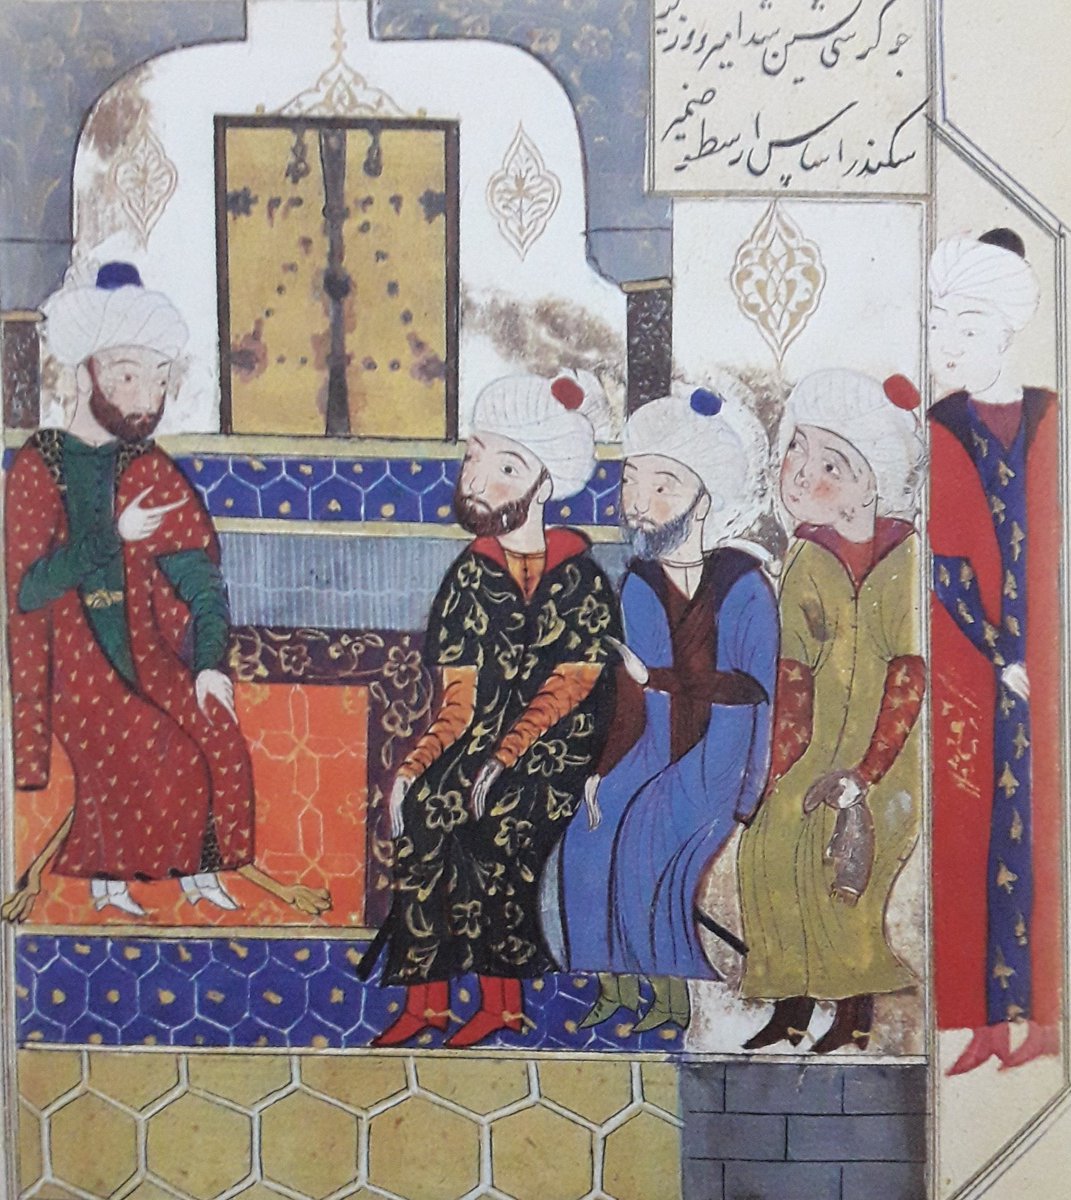 جو کرسی نشین شد امیر و وزیر
سکندر اساس ارسطو ضمیر